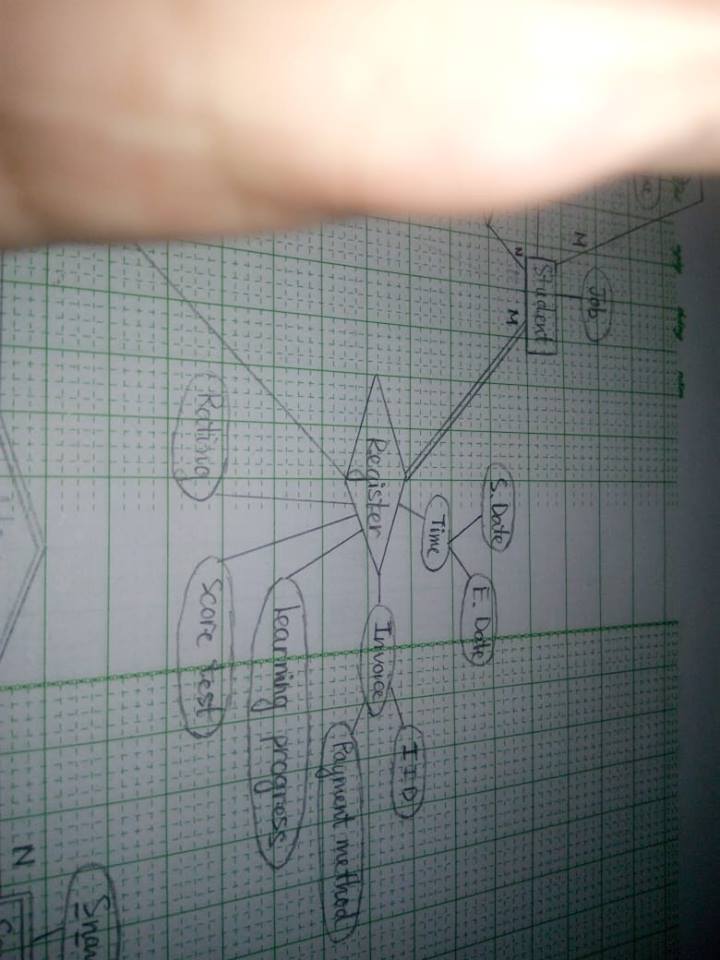 Job
M
Student
N
M
S. Date
E. Date
Time
IID
Register
Invoice
Payment method
Learning progress
Rating
Score test
N